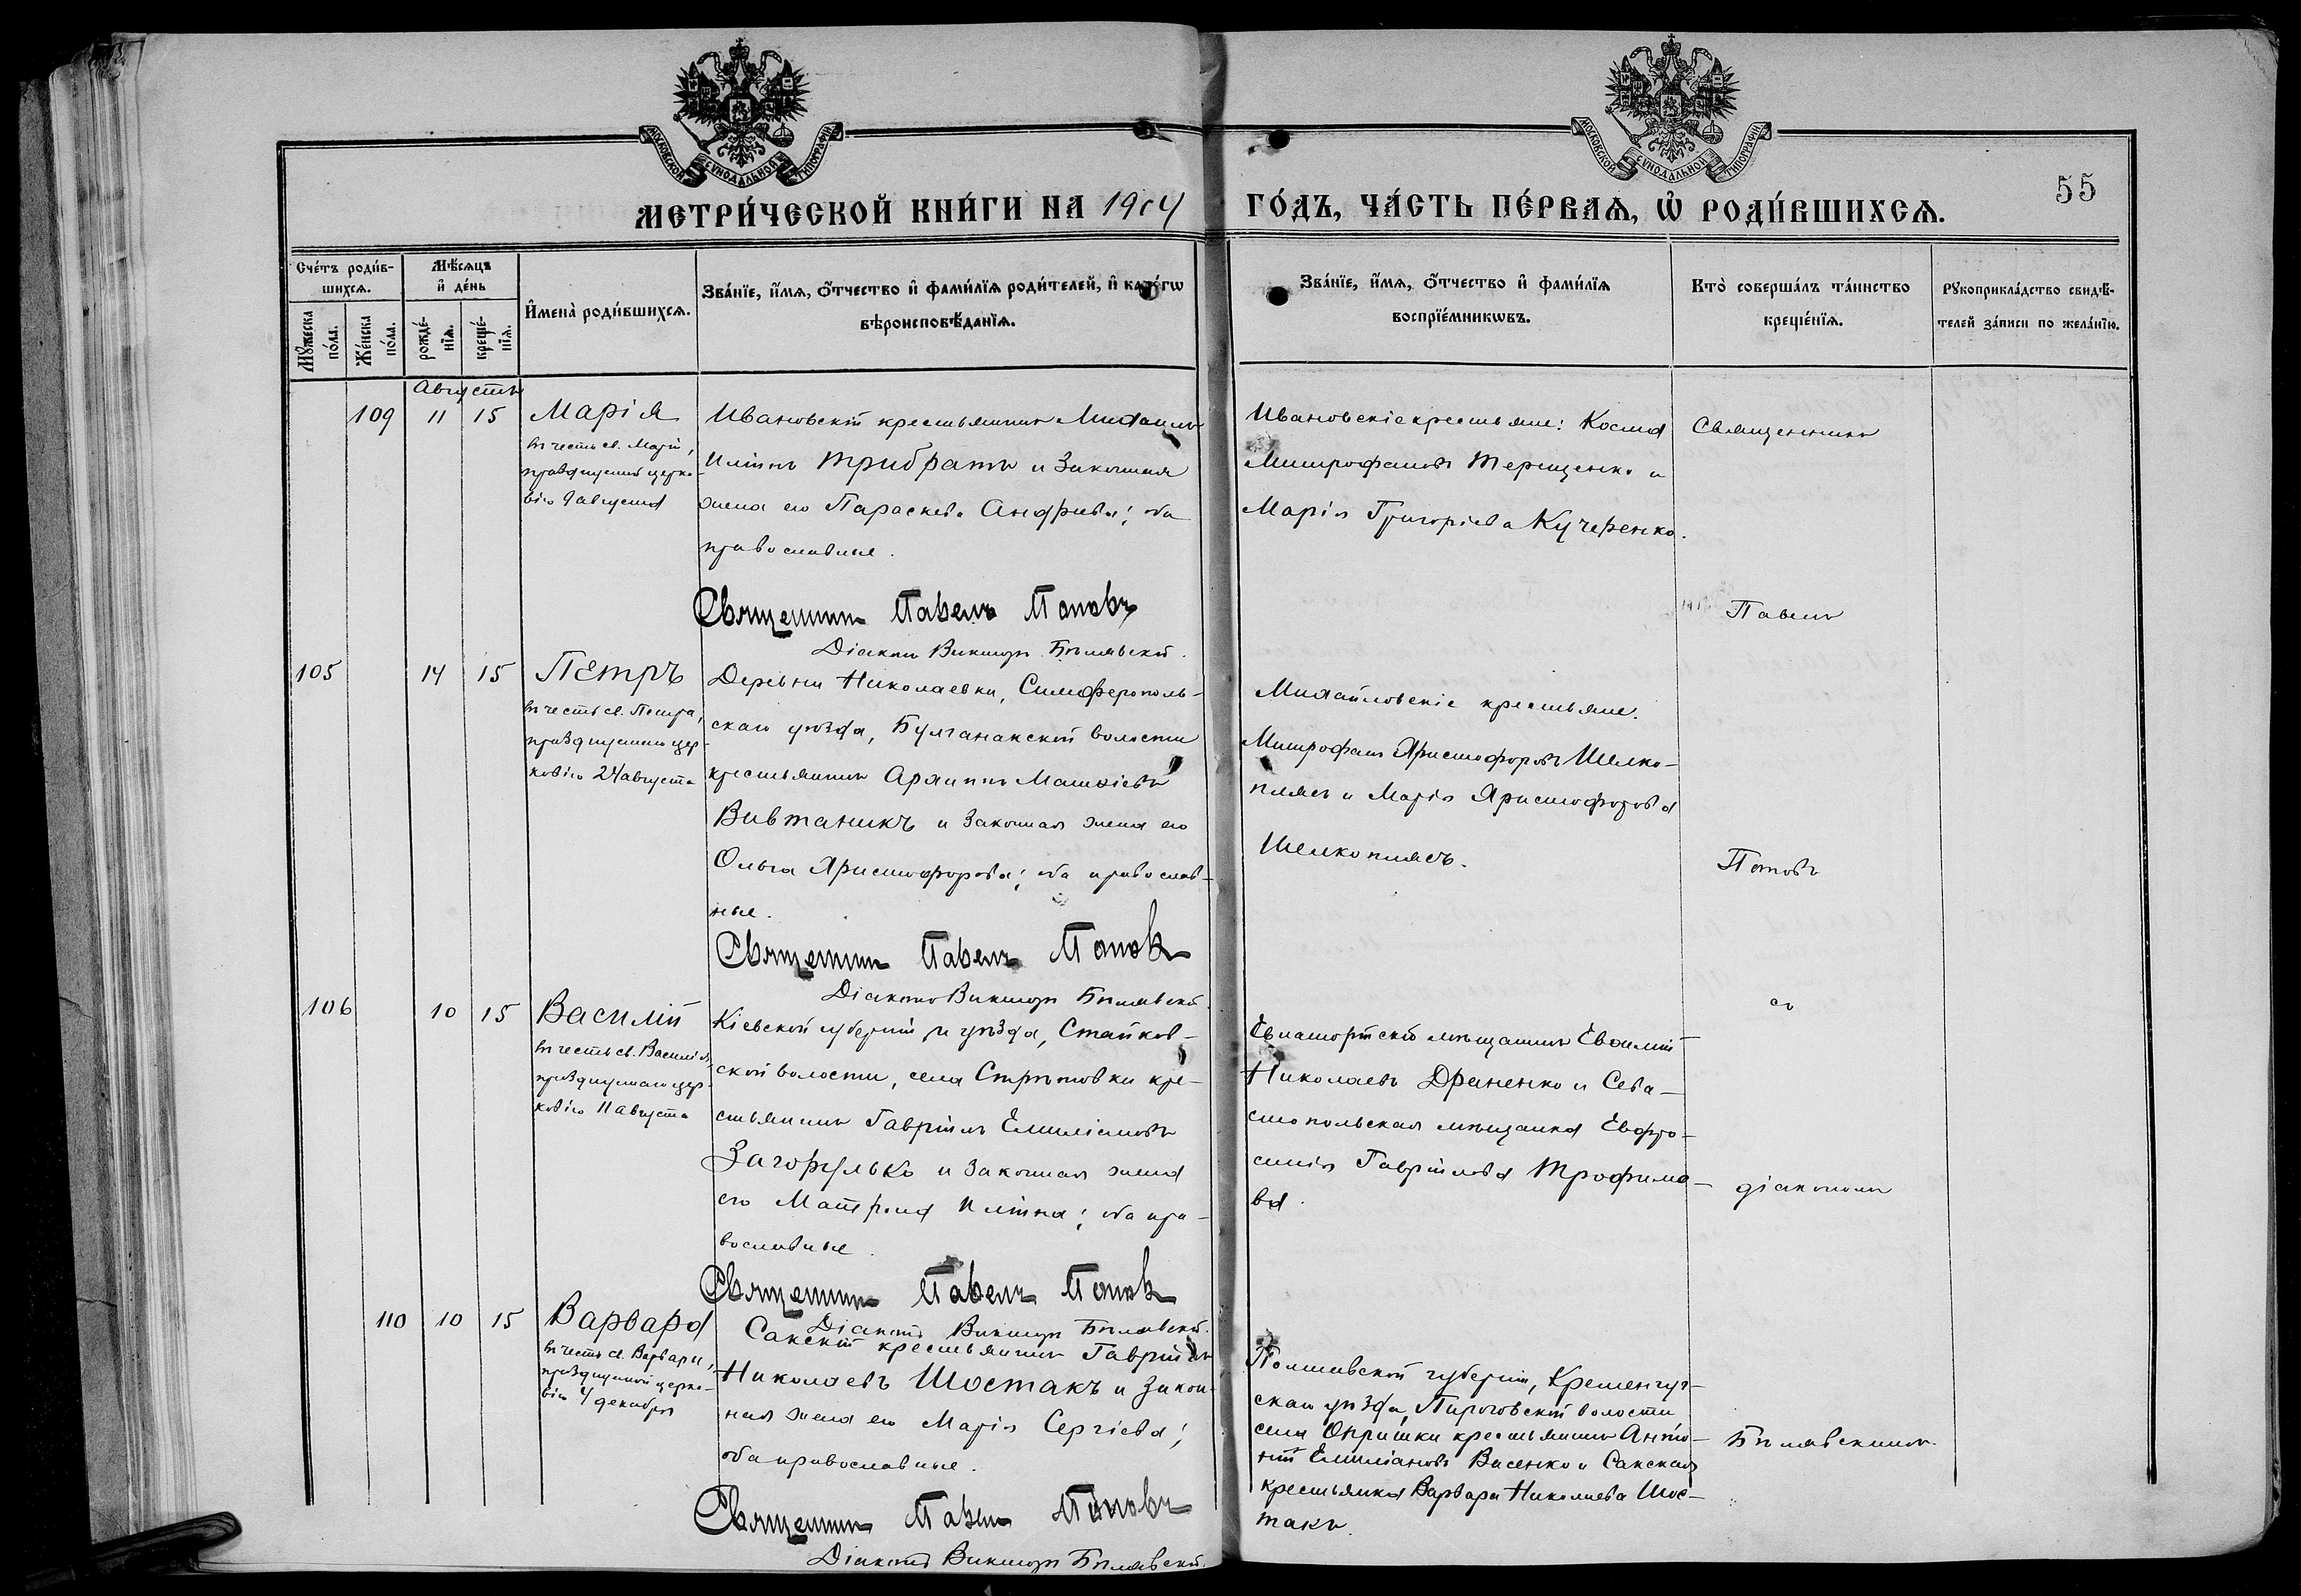 МОСКОВСКОЙ СѴНОДАЛЬНОЙ ТИПОГРАФІИ
МОСКОВСКОЙ СѴНОДАЛЬНОЙ ТИПОГРАФІИ
МЕТРИ́ЧЕСКОЙ КНИ́ГИ НА 1904
ГО́ДЪ, ЧА́СТЬ ПЕ́РВАѦ, Ѡ҆ РОДИ́ВШИХСѦ.
55
Сче́тъ роди́в-
шихсѧ.
Мѣ́сѧцъ
и҆ де́нь
Мꙋ́жеска
по́ла.
Же́нска
по́ла.
рожде́-
нїѧ.
креще́-
нїѧ.
И҆мена̀ роди́вшихсѧ.
Зва́нїе, и҆́мѧ, ѻ҆́тчество и҆ фами́лїѧ роди́телей, и҆ како́гѡ
вѣроисповѣ́данїѧ.
Зва́нїе, и҆́мѧ, ѻ҆́тчество и҆ фами́лїѧ
воспрїе́мникѡвъ.
Кто̀ соверша́лъ та́инство
креще́нїѧ.
Рꙋкоприкла́дство свидѣ́-
телей за́писи по жела́нїю.
Августъ
109 11 15 Марія
въ честь св. Маріи,
празднуемой церко-
вію 9 августа
Ивановскій крестьянинъ Михаилъ
Иліинъ Трибратъ и законная
жена его Параскева Андреева; оба
православные.
Священникъ Павелъ Поповъ
Діаконъ Викторъ Бѣлявскій.
Ивановскіе крестьяне: Косма
Митрофановъ Терещенко и
Марія Григоріева Кучеренко.
Священникъ
Павелъ
105 14 15 Петръ
въ честь св. Петра,
празднуемаго цер-
ковію 24 августа
Деревни Николаевки, Симферополь-
скаго уѣзда, Булганакской волости
крестьянинъ Архиппъ Матѳіевъ
Вивтаникъ и законная жена его
Ольга Христофорова; оба православ-
ные.
Священникъ Павелъ Поповъ
Діаконъ Викторъ Бѣлявскій.
Михайловскіе крестьяне:
Митрофанъ Христофоровъ Шелко-
плясъ и Марія Христофорова
Шелкоплясъ.
Поповъ
106 10 15 Василій
въ честь св. Василія,
празднуемаго цер-
ковію 11 августа
Кіевской губерніи и уѣзда, Стайков-
ской волости, села Стрѣтовки кре-
стьянинъ Гавріилъ Емиліановъ
Загорулько и законная жена
его Матрона Иліина; оба пра-
вославные.
Священникъ Павелъ Поповъ
Діаконъ Викторъ Бѣлявскій.
Евпаторійскій мѣщанинъ Евѳимій
Николаевъ Драненко и Сева-
стопольская мѣщанка Евфро-
синія Гавріилова Трофимо-
ва.
съ
діакономъ
110 10 15 Варвара
въ честь св. Варвары,
празднуемой церко-
вію 4 декабря
Сакскій крестьянинъ Гавріилъ
Николаевъ Шостакъ и закон-
ная жена его Марія Сергіева;
оба православные.
Священникъ Павелъ Поповъ
Діаконъ Викторъ Бѣлявскій.
Полтавской губерніи, Кременчуг-
скаго уѣзда, Пироговской волости
села Опришки крестьянинъ Анто-
ній Емиліановъ Висенко и Сакская
крестьянка Варвара Николаева Шос-
такъ.
Бѣлявскимъ.